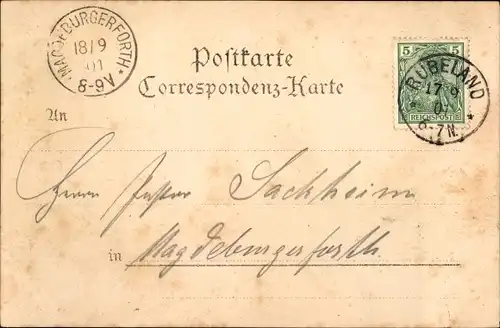 MAGDEBURGERFORTH
18/9
01
8-9V.
Postkarte
Correspondenz-Karte
5 5
REICHSPOST
RÜBELAND
17 9
0
6-7N.
An
Herrn Pastor Sackheim
in Magdeburgerforth